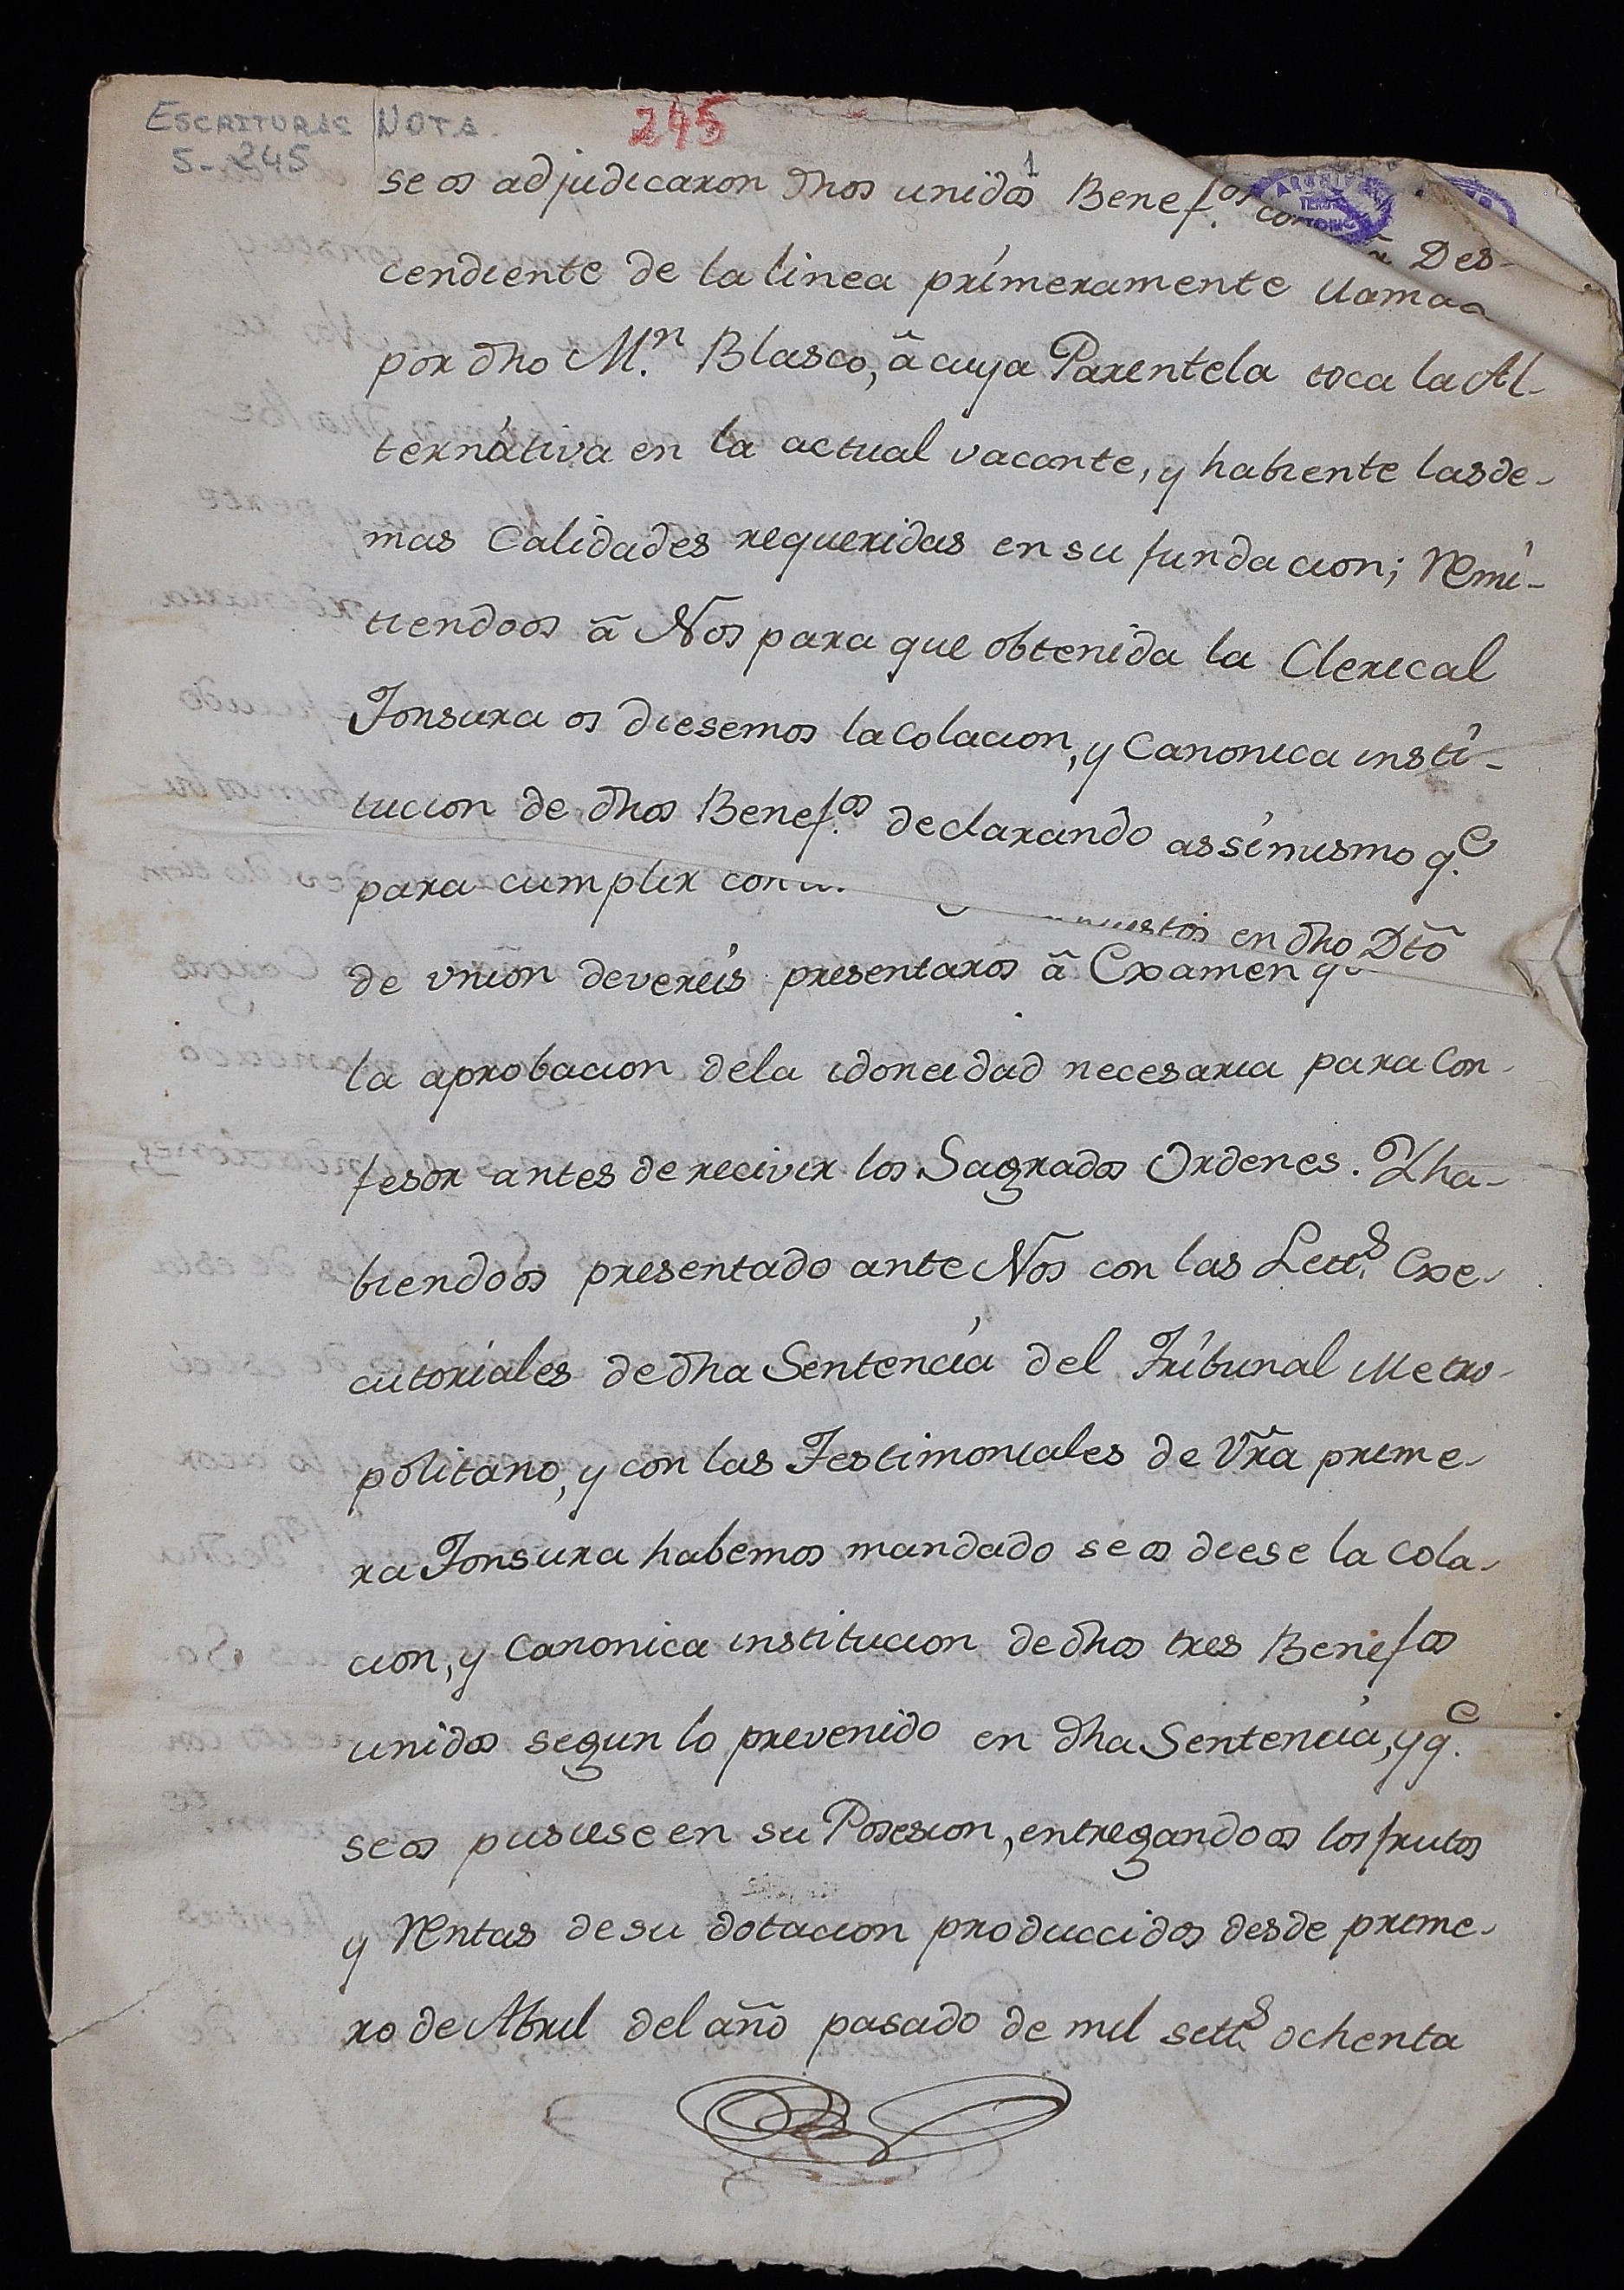 ESCRITURAS NOTA.
5-245
245
1
se os adjudicaron dhos unidos Benef.os
Des-
cendiente de la linea primeramente
por dho M.n Blasco, â cuya Parentela toca la Al-
ternátiva en la actual vacante, y habiente las de-
mas Calidades requeridas en su fundacion; Remi-
tiendoos â Nos para que obtenida la Clerical
Tonsura os diesemos la Colacion, y Canonica insti-
tucion de dhos Benef.os declarando assimismo q.e
para cumplir con
en dho Dtõ
de vnion devereis presentaros â Examen
la aprobacion dela idoneidad necesaria para Con-
fesor antes de recivir los Sagrados Ordenes. Y ha-
biendoos presentado ante Nos con las Lett.s Exe-
cutoriales de dha Sentencia del Tribunal Metro-
politano, y con las Testimoniales de Vrã prime-
ra Tonsura habemos mandado se os diese la cola-
cion, y Canonica institucion de dhos tres Benefos
unidos segun lo prevenido en dha Sentencia, y q.e
se os pusiese en su Posesion, entregandoos los frutos
y Rentas de su dotacion produccidos desde prime-
ro de Abril del año pasado de mil sett.s ochenta